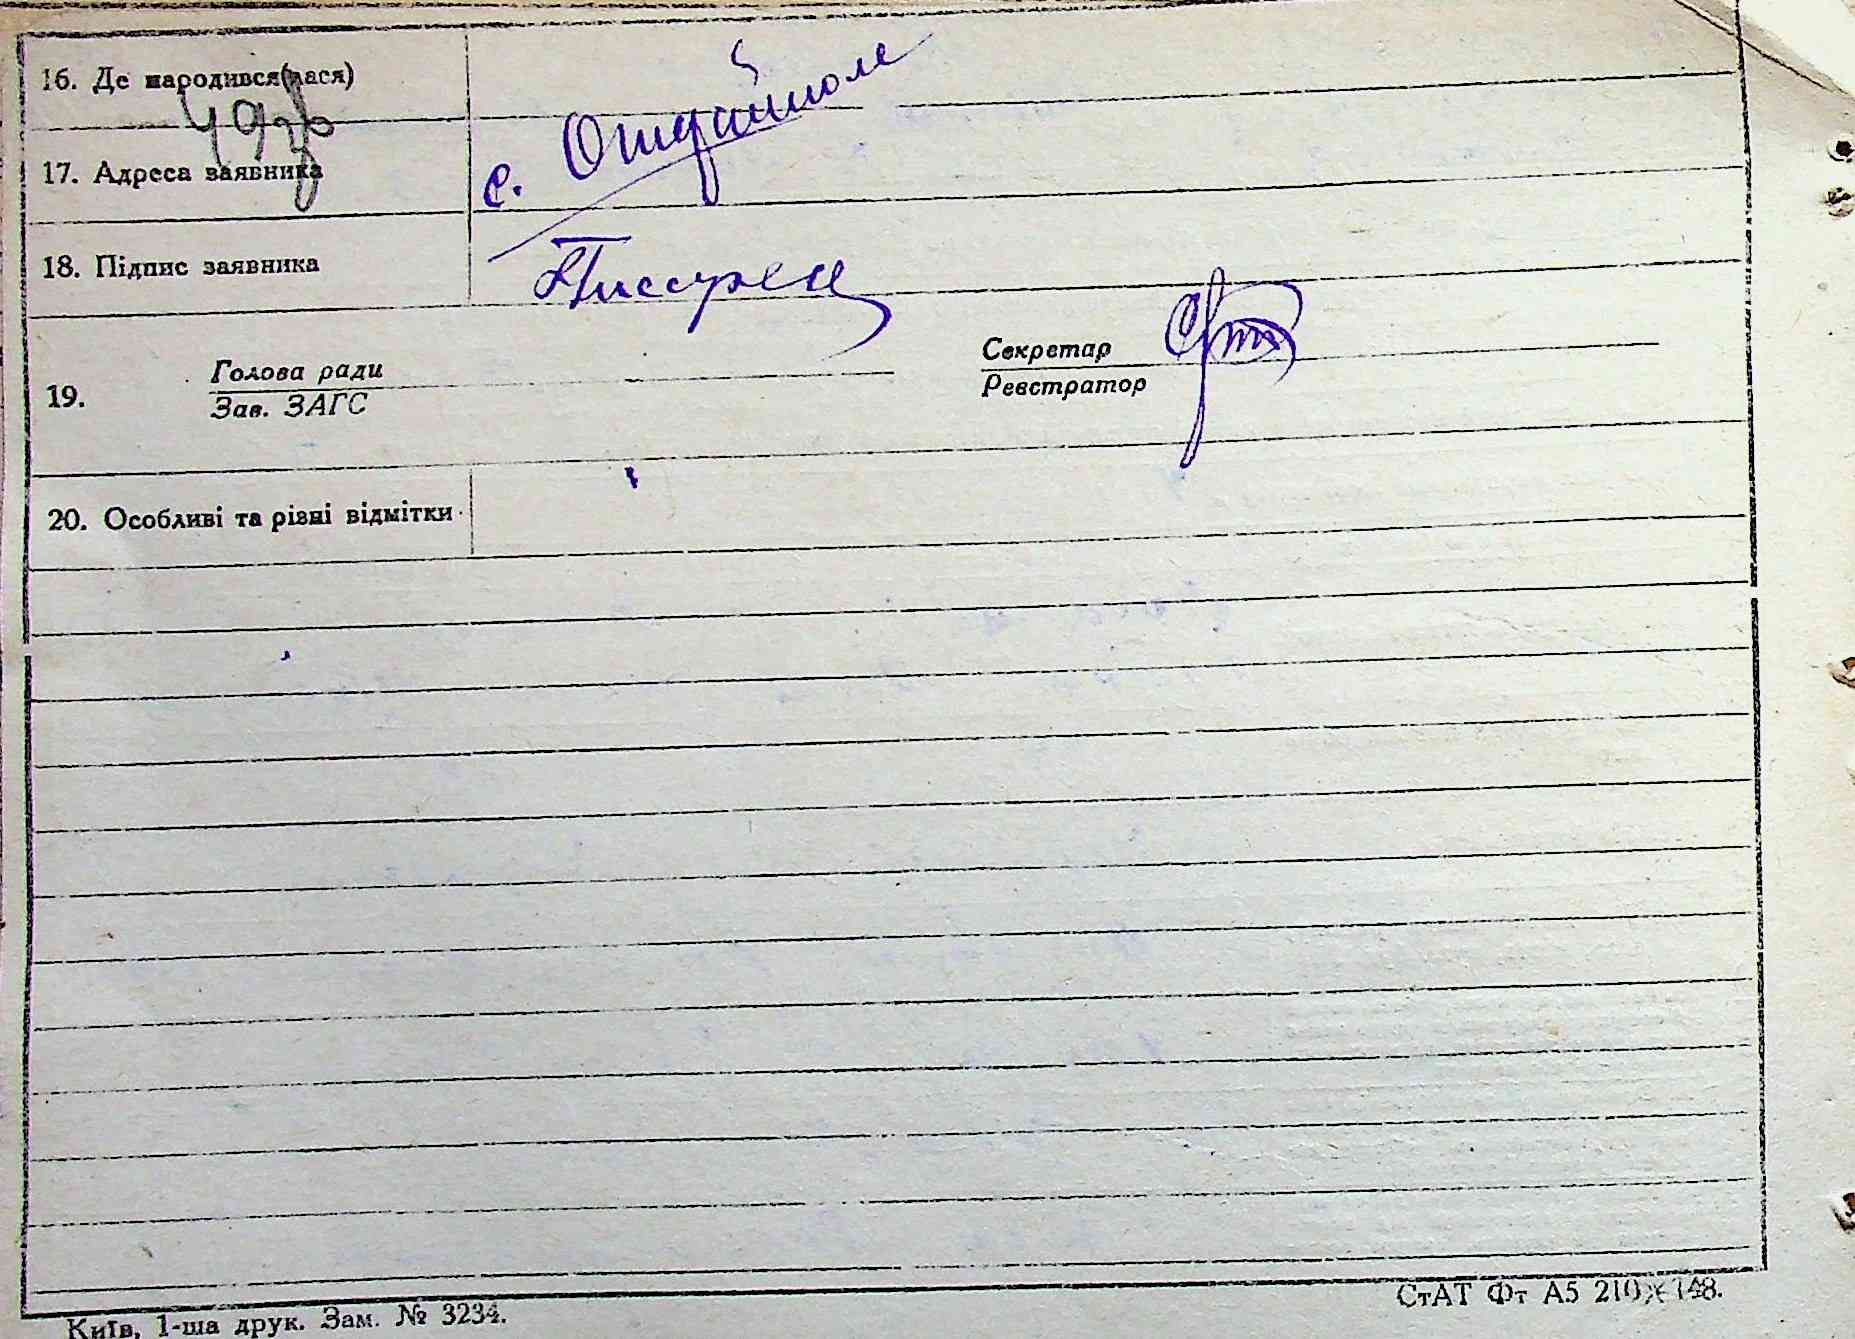 16. Де народився(лася)
49зв
17. Адреса заявника
с.
18. Підпис заявника
19. Голова ради
Зав. ЗАГС
Секретар
Реєстратор
20. Особливі та різні відмітки
Київ, 1-ша друк. Зам. № 3234.
СтАТ Фт А5 210×148.